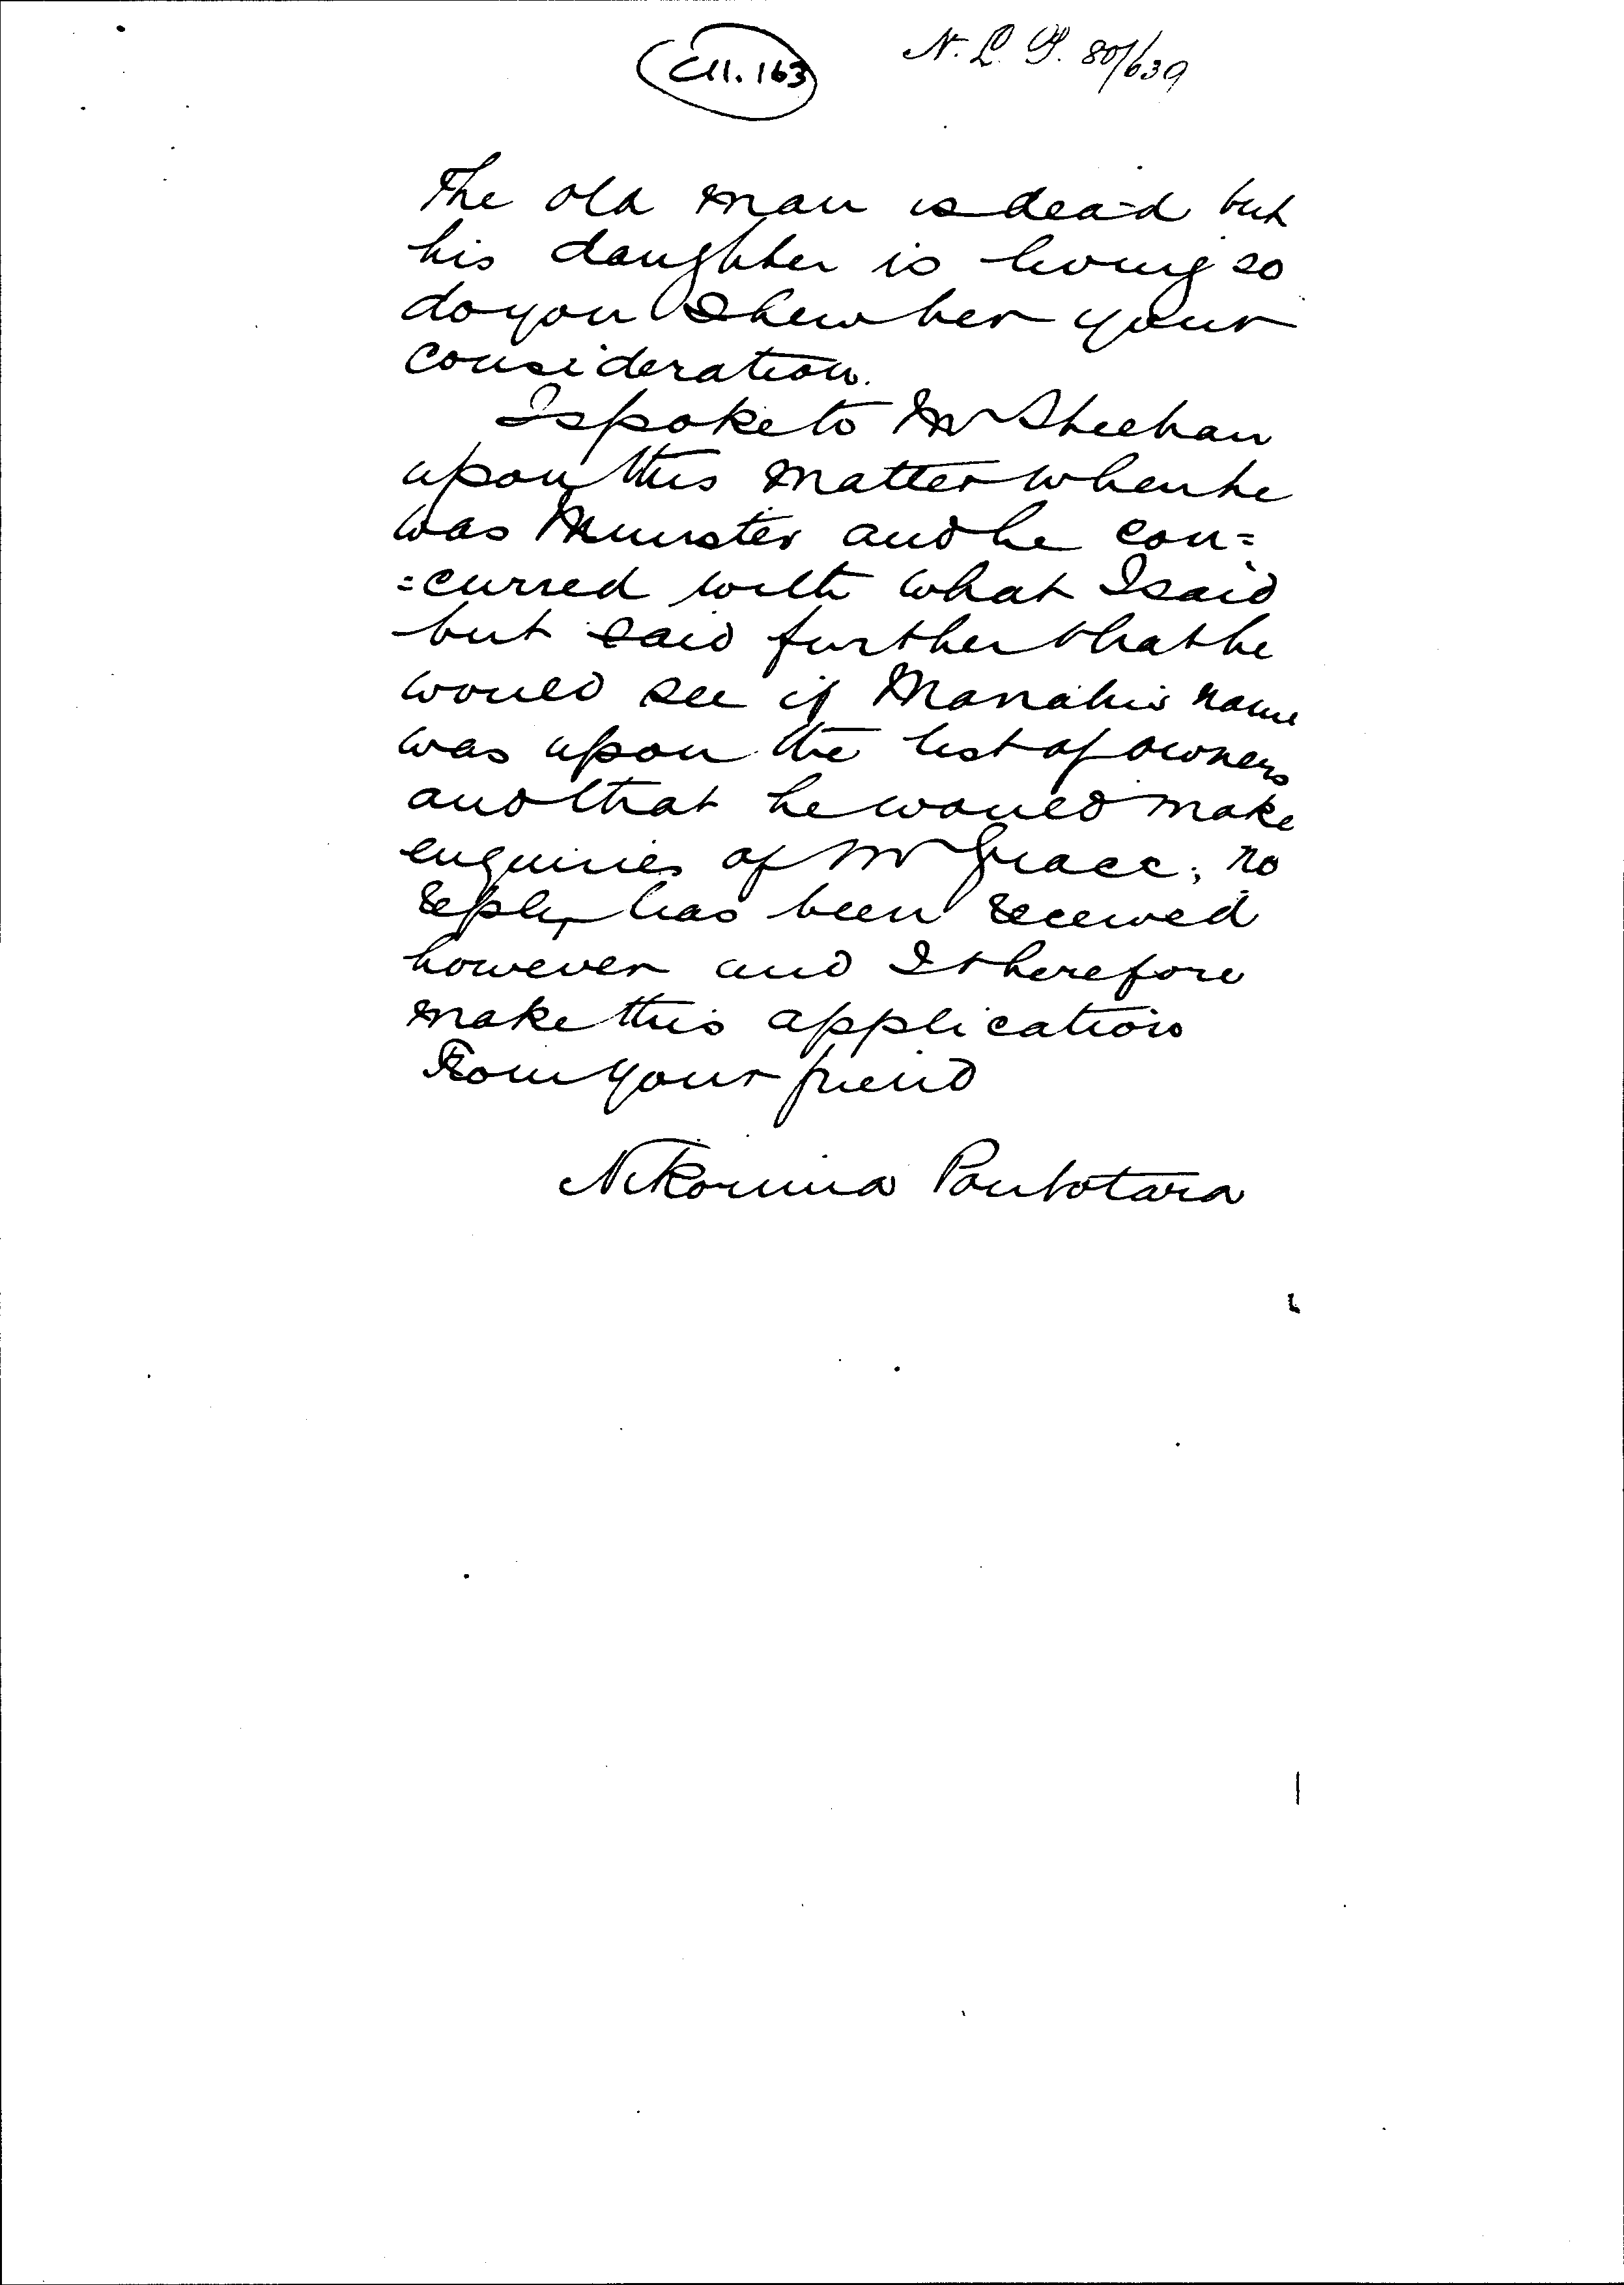 C11.163
N. L. P. 80/639
The old man is dead but
his daughter is living so
do you shew her your
consideration.
I spoke to Mr Sheehan
upon this matter when he
was Minister and he con=
=curred with what I said
but said further that he
would see if Manahi's name
was upon the list of owners
and that he would make
enquiries of Mr Grace; no
reply has been received
however and I therefore
make this application
From your friend
Nikorima Poutotara